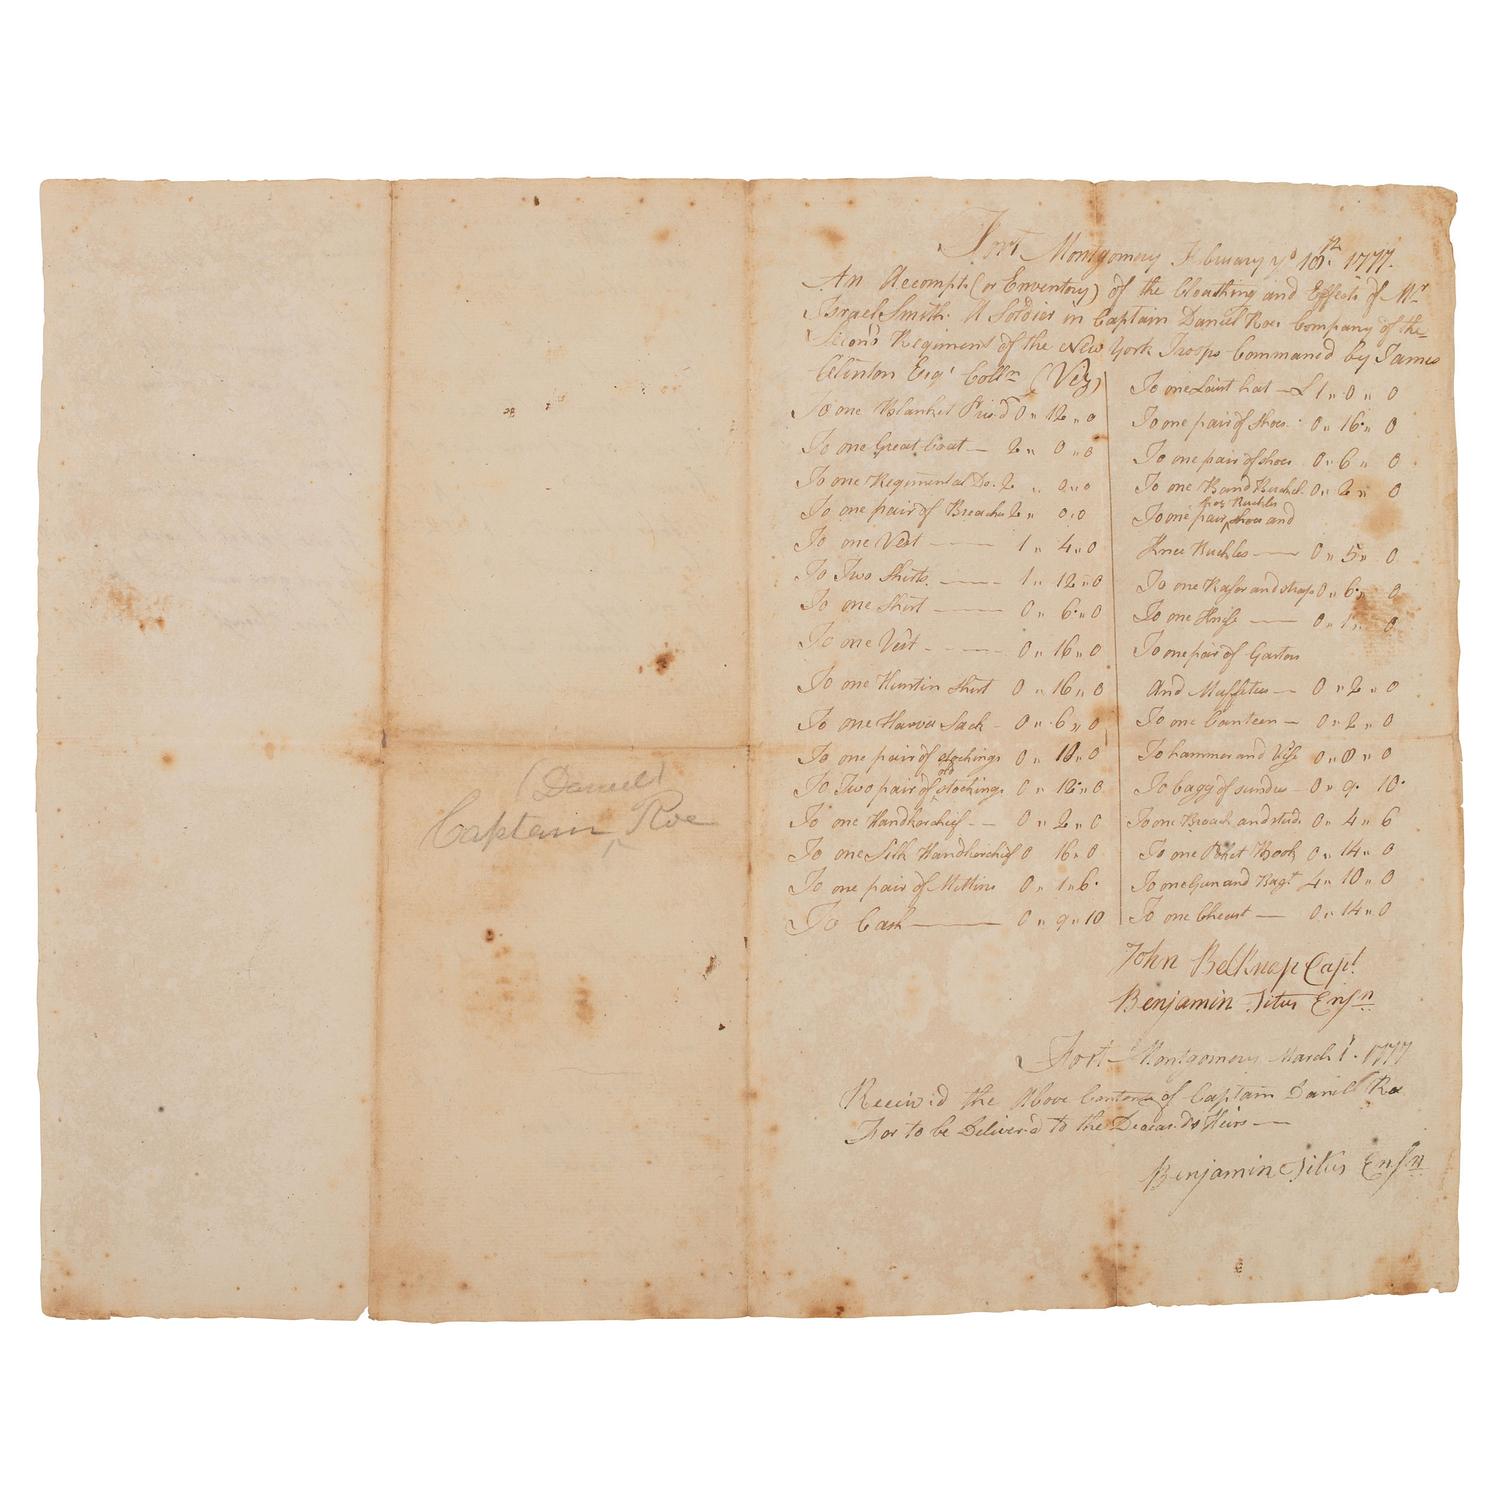 (Daniel)
Captain ^ Roe
Fort Montgomery Febuary ye 10th 1777.
An Accompt (or Enventory) of the Cloathing and Effects of Mr
Israel Smith. A Soldier in Captain Daniel Roes Company of the
Second Regiment of the New York Troops Command by James
Clinton Esqr Colln (Viz)
To one Blanket Pris'd 0 " 12 " 0
To one Great Coat — 2 " 0 " 0
To one Regimental Do. 2 " 0 " 0
To one pair of Breaches 2 " 0 " 0
To one Vest —— 1 " 4 " 0
To Two Shirts —— 1 " 12 " 0
To one Shirt —— 0 " 6 " 0
To one Vest —— 0 " 16 " 0
To one Huntin Shirt 0 " 16 " 0
To one Haver Sack - 0 " 6 " 0
To one pair of stockings 0 " 18 " 0
To Two pair of old stockings 0 " 12 " 0
To one Handkerchief -- 0 " 2 " 0
To one Silk Handkerchief 0 16 " 0
To one pair of Mittins 0 " 1 " 6
To Cash —— 0 " 9 " 10
To one hat — £ 1 " 0 " 0
To one pair of Shoes 0 " 16 " 0
To one pair of shoes 0 " 6 " 0
To one Band Buckel 0 " 2 " 0
To one pair shoes and
Knee Buckles —— 0 " 5 " 0
To one Rasor and strap 0 " 6 " 0
To one Knife —— 0 " 1 " 0
To one pair of Garters
And Muffitees — 0 " 2 " 0
To one Canteen — 0 " 2 " 0
To hammer and Vise 0 " 8 " 0
To bagg of sundus — 0 " 9 " 10
To one Broach and stud 0 " 4 " 6
To one Poket Book 0 " 14 " 0
To one Gun and Bagt 4 " 10 " 0
To one Cheast — 0 " 14 " 0
John Belknap Capt
Benjamin Titus Ensn
Fort Montgomery March 1. 1777
Receiv'd the Above of Captain Daniel Roe
For to be Deliver'd to the Deceasds Heirs —
Benjamin Titus Ensn